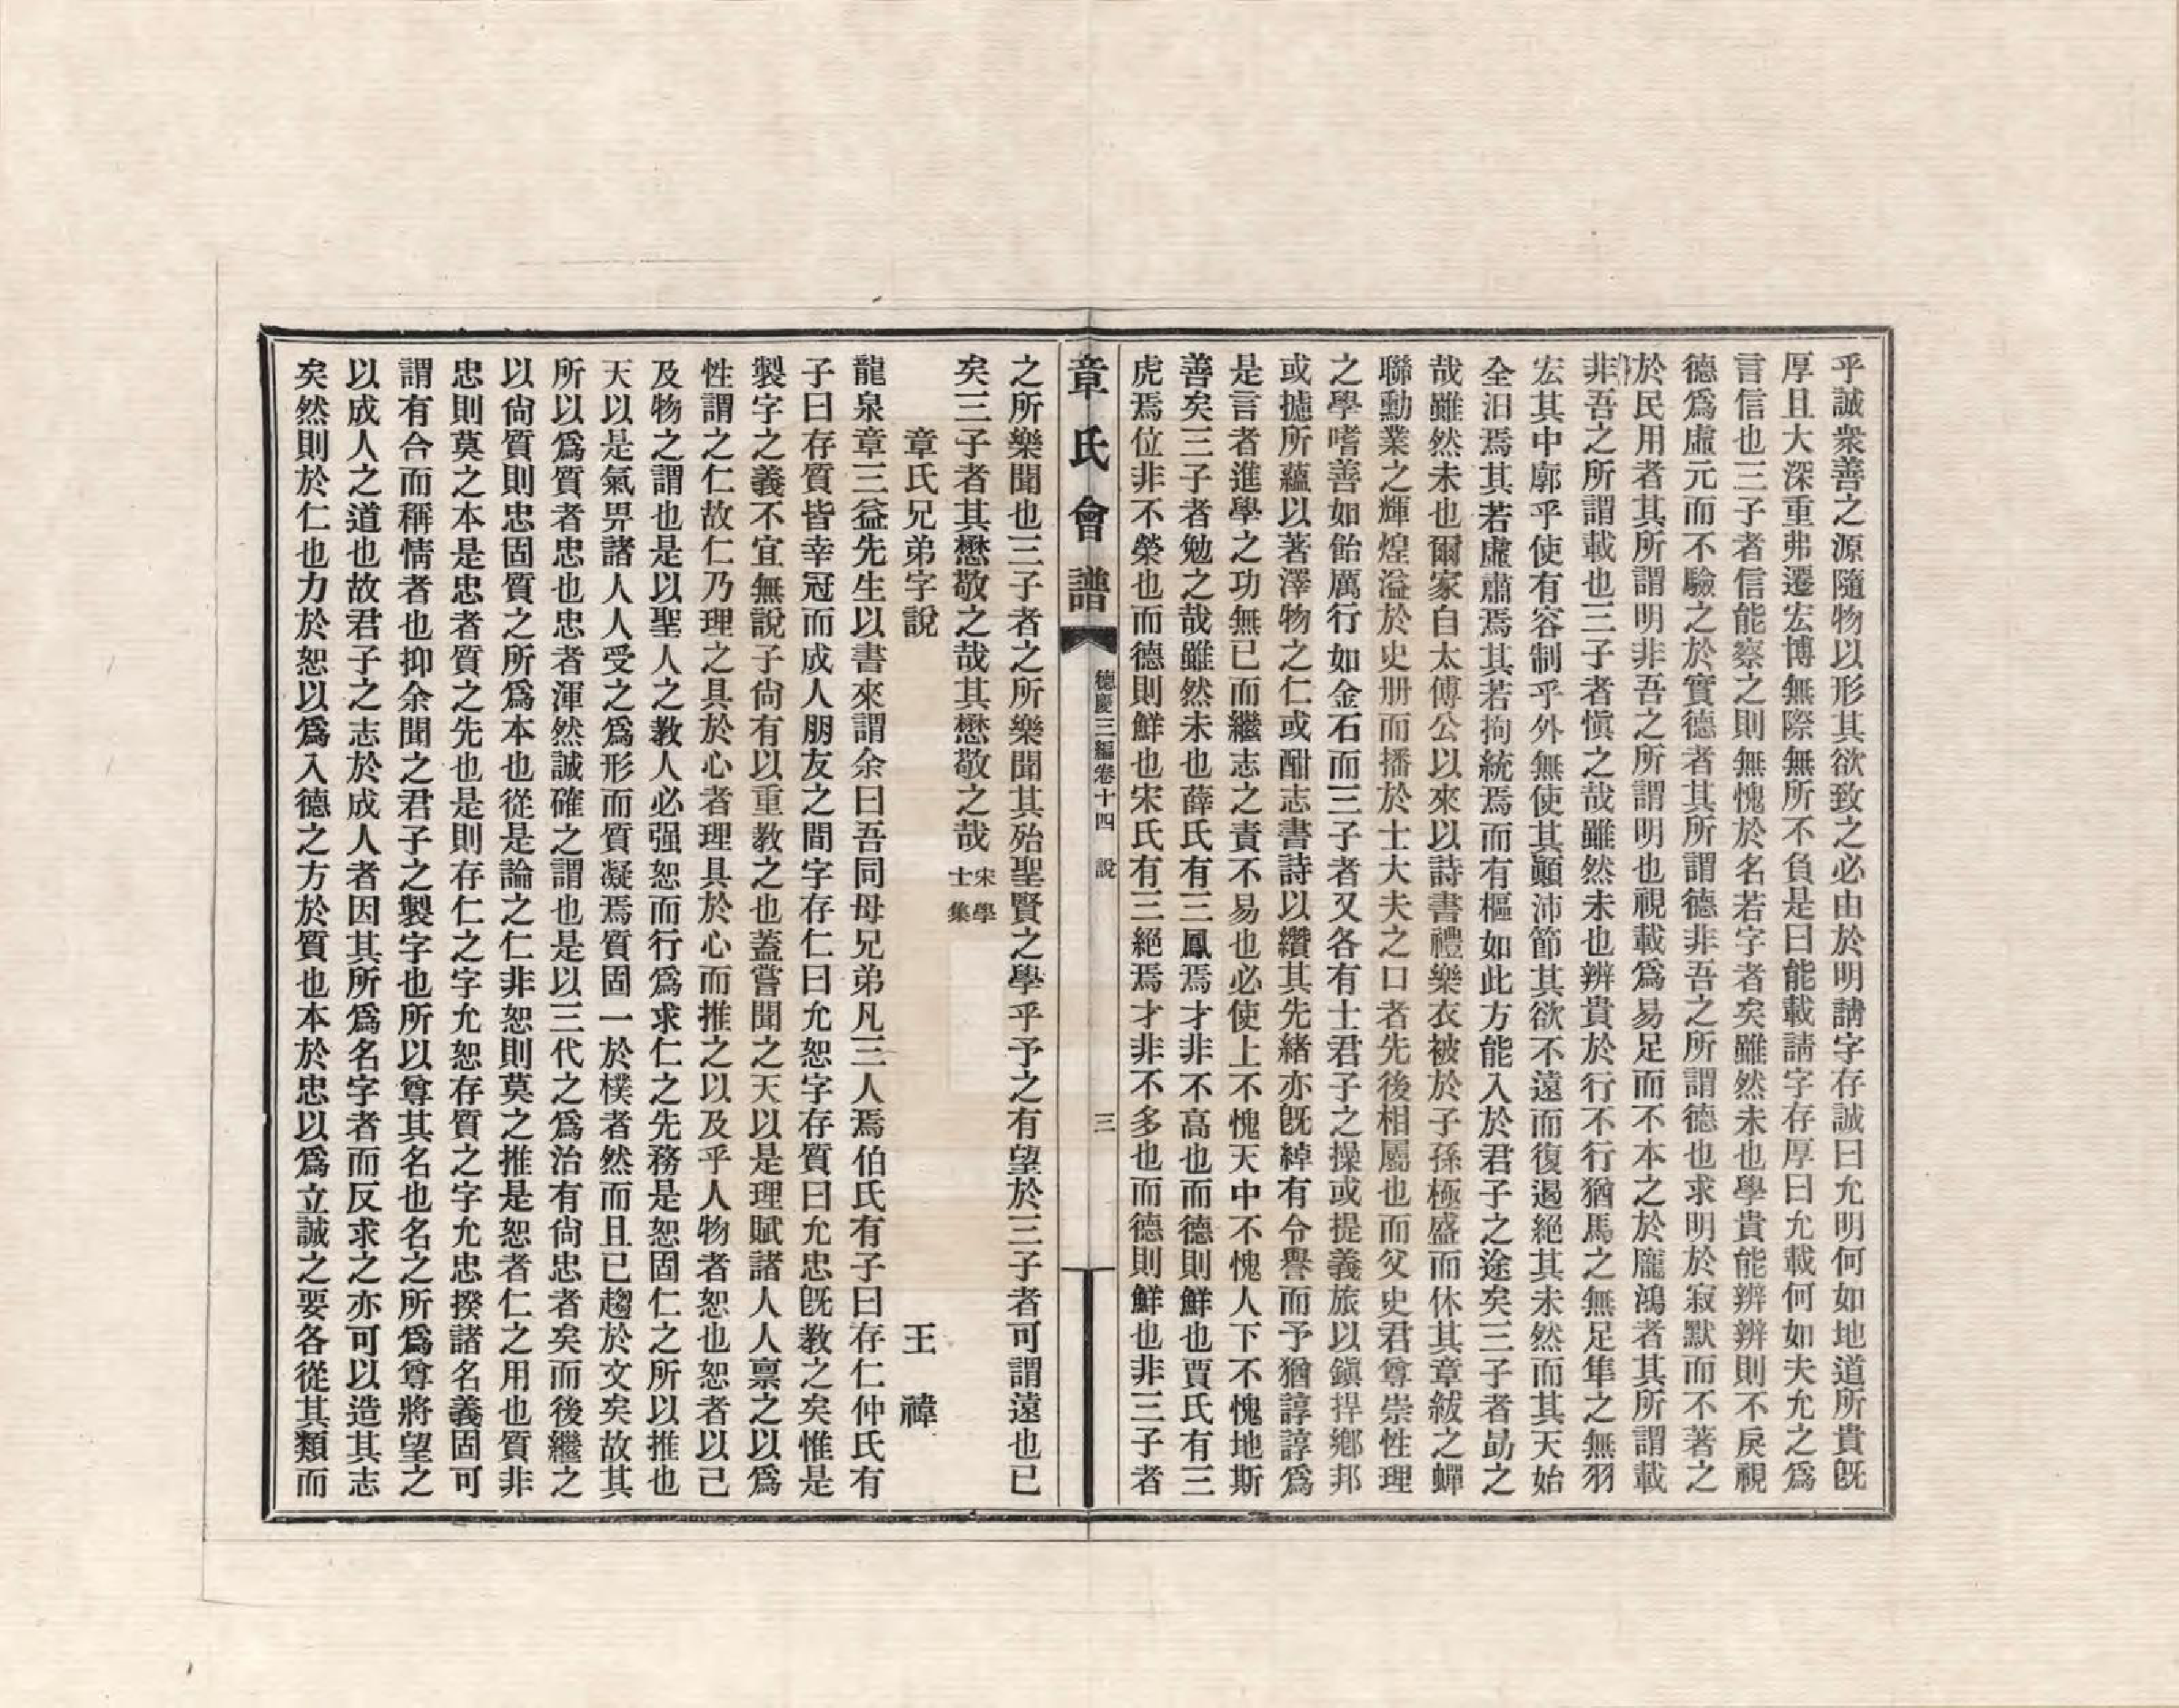 乎誠衆善之源隨物以形其欲致之必由於明請字存誠曰允明何如地道所貴旣
厚且大深重弗遷宏博無際無所不負是曰能載請字存厚曰允載何如夫允之爲
言信也三子者信能察之則無愧於名若字者矣雖然未也學貴能辨辨則不戾視
德爲虛元而不驗之於實德者其所謂德非吾之所謂德也求明於寂默而不著之
於民用者其所謂明非吾之所謂明也視載爲易足而不本之於龐鴻者其所謂載
非吾之所謂載也三子者愼之哉雖然未也辨貴於行不行猶馬之無足隼之無羽
宏其中廓乎使有容制乎外無使其顚沛節其欲不遠而復遏絕其未然而其天始
全汨焉其若虛肅焉其若拘統焉而有樞如此方能入於君子之途矣三子者勗之
哉雖然未也爾家自太傅公以來以詩書禮樂衣被於子孫極盛而休其章紱之蟬
聯勳業之輝煌溢於史册而播於士大夫之口者先後相屬也而父史君尊崇性理
之學嗜善如飴厲行如金石而三子者又各有士君子之操或提義旅以鎭捍鄕邦
或攄所蘊以著澤物之仁或酣志書詩以纘其先緒亦旣綽有令譽而予猶諄諄爲
是言者進學之功無已而繼志之責不易也必使上不愧天中不愧人下不愧地斯
善矣三子者勉之哉雖然未也薛氏有三鳳焉才非不高也而德則鮮也賈氏有三
虎焉位非不榮也而德則鮮也宋氏有三絕焉才非不多也而德則鮮也非三子者
章氏會譜
德慶三編卷十四 說
三
之所樂聞也三子者之所樂聞其殆聖賢之學乎予之有望於三子者可謂遠也已
矣三子者其懋敬之哉其懋敬之哉 宋學士集
章氏兄弟字說 王禕
龍泉章三益先生以書來謂余曰吾同母兄弟凡三人焉伯氏有子曰存仁仲氏有
子曰存質皆幸冠而成人朋友之間字存仁曰允恕字存質曰允忠旣教之矣惟是
製字之義不宜無說子尙有以重教之也蓋嘗聞之天以是理賦諸人人禀之以爲
性謂之仁故仁乃理之具於心者理具於心而推之以及乎人物者恕也恕者以己
及物之謂也是以聖人之教人必强恕而行爲求仁之先務是恕固仁之所以推也
天以是氣畀諸人人受之爲形而質凝焉質固一於樸者然而且已趨於文矣故其
所以爲質者忠也忠者渾然誠確之謂也是以三代之爲治有尙忠者矣而後繼之
以尙質則忠固質之所爲本也從是論之仁非恕則莫之推是恕者仁之用也質非
忠則莫之本是忠者質之先也是則存仁之字允恕存質之字允忠揆諸名義固可
謂有合而稱情者也抑余聞之君子之製字也所以尊其名也名之所爲尊將望之
以成人之道也故君子之志於成人者因其所爲名字者而反求之亦可以造其志
矣然則於仁也力於恕以爲入德之方於質也本於忠以爲立誠之要各從其類而